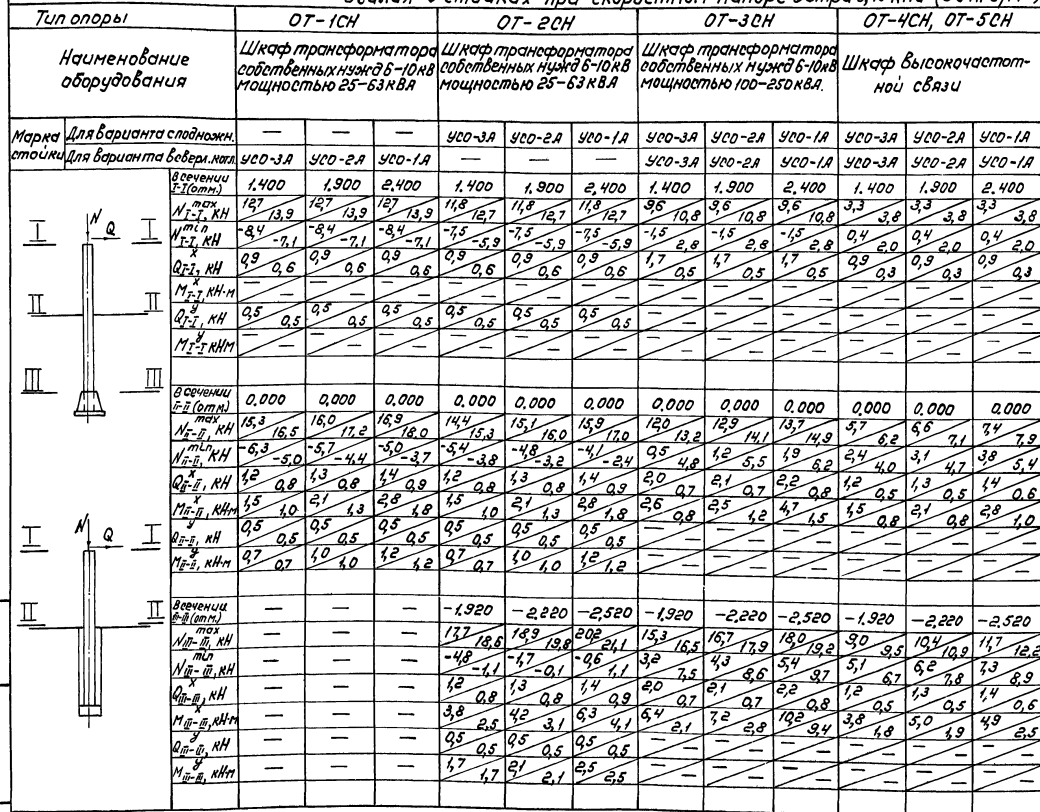 Усилия в стойках при скоростном напоре ветра
Тип опоры ОТ-1СН ОТ-2СН ОТ-3СН ОТ-4СН, ОТ-5СН
Наименование оборудования
Шкаф трансформатора собственных нужд 6-10кВ мощностью 25-63кВА
Шкаф трансформатора собственных нужд 6-10кВ мощностью 25-63кВА
Шкаф трансформатора собственных нужд 6-10кВ мощностью 100-250кВА.
Шкаф высокочастотной связи
Марка стойки
Для варианта сподножн. — — — УСО-3А УСО-2А УСО-1А УСО-3А УСО-2А УСО-1А УСО-3А УСО-2А УСО-1А
Для варианта всверл. котл. УСО-3А УСО-2А УСО-1А — — — УСО-3А УСО-2А УСО-1А УСО-3А УСО-2А УСО-1А
В сечении I-I (отм.) 1.400 1.900 2.400 1.400 1.900 2.400 1.400 1.900 2.400 1.400 1.900 2.400
N max I-I, кН 12,7/13,9 12,7/13,9 12,7/13,9 11,8/12,7 11,8/12,7 11,8/12,7 9,6/10,8 9,6/10,8 9,6/10,8 3,3/3,8 3,3/3,8 3,3/3,8
N min I-I, кН -8,4/-7,1 -8,4/-7,1 -8,4/-7,1 -7,5/-5,9 -7,5/-5,9 -7,5/-5,9 -1,5/2,8 -1,5/2,8 -1,5/2,8 0,4/2,0 0,4/2,0 0,4/2,0
Q x I-I, кН 0,9/0,6 0,9/0,6 0,9/0,6 0,9/0,6 0,9/0,6 0,9/0,6 1,7/0,5 1,7/0,5 1,7/0,5 0,9/0,3 0,9/0,3 0,9/0,3
M x I-I, кН·м —/— —/— —/— —/— —/— —/— —/— —/— —/— —/— —/— —/—
Q y I-I, кН 0,5/0,5 0,5/0,5 0,5/0,5 0,5/0,5 0,5/0,5 0,5/0,5 —/— —/— —/— —/— —/— —/—
M y I-I кНм —/— —/— —/— —/— —/— —/— —/— —/— —/— —/— —/— —/—
В сечении II-II (отм.) 0.000 0.000 0.000 0.000 0.000 0.000 0.000 0.000 0.000 0.000 0.000 0.000
N max II-II, кН 15,3/16,5 16,0/17,2 16,9/18,0 14,4/15,3 15,1/16,0 15,9/17,0 12,0/13,2 12,9/14,1 13,7/14,9 5,7/6,2 6,6/7,1 7,4/7,9
N min II-II, кН -6,3/-5,0 -5,7/-4,4 -5,0/-3,7 -5,4/-3,8 -4,8/-3,2 -4,1/-2,4 0,5/4,8 1,2/5,5 1,9/6,2 2,4/4,0 3,1/4,7 3,8/5,4
Q x II-II, кН 1,2/0,8 1,3/0,8 1,4/0,9 1,2/0,8 1,3/0,8 1,4/0,9 2,0/0,7 2,1/0,7 2,2/0,8 1,2/0,5 1,3/0,5 1,4/0,6
M x II-II, кНм 1,5/1,0 2,1/1,3 2,8/1,8 1,5/1,0 2,1/1,3 2,8/1,8 2,6/0,8 2,5/1,2 4,7/1,5 1,5/0,8 2,1/0,8 2,8/1,0
Q y II-II, кН 0,5/0,5 0,5/0,5 0,5/0,5 0,5/0,5 0,5/0,5 0,5/0,5 —/— —/— —/— —/— —/— —/—
M y II-II, кН·м 0,7/0,7 1,0/1,0 1,2/1,2 0,7/0,7 1,0/1,0 1,2/1,2 —/— —/— —/— —/— —/— —/—
В сечении III-III (отм.) — — — -1.920 -2,220 -2,520 -1,920 -2,220 -2,520 -1.920 -2,220 -2.520
N max III-III, кН — — — 17,7/18,6 18,9/19,8 20,2/21,1 15,3/16,5 16,7/17,9 18,0/19,2 9,0/9,5 10,4/10,9 11,7/12,2
N min III-III, кН — — — -4,8/-1,1 -1,7/-0,1 -0,6/1,1 3,2/7,5 4,3/8,6 5,4/9,7 5,1/6,7 6,2/7,8 7,3/8,9
Q x III-III, кН — — — 1,2/0,8 1,3/0,8 1,4/0,9 2,0/0,7 2,1/0,7 2,2/0,8 1,2/0,5 1,3/0,5 1,4/0,6
M x III-III, кН·м — — — 3,8/2,5 4,2/3,1 6,3/4,1 6,4/2,1 7,2/2,8 10,2/9,4 3,8/1,8 5,0/1,9 4,9/2,5
Q y III-III, кН — — — 0,5/0,5 0,5/0,5 0,5/0,5 —/— —/— —/— —/— —/— —/—
M y III-III, кНм — — — 1,7/1,7 2,1/2,1 2,5/2,5 —/— —/— —/— —/— —/— —/—
N
I Q I
II II
III III
N
I Q I
II II